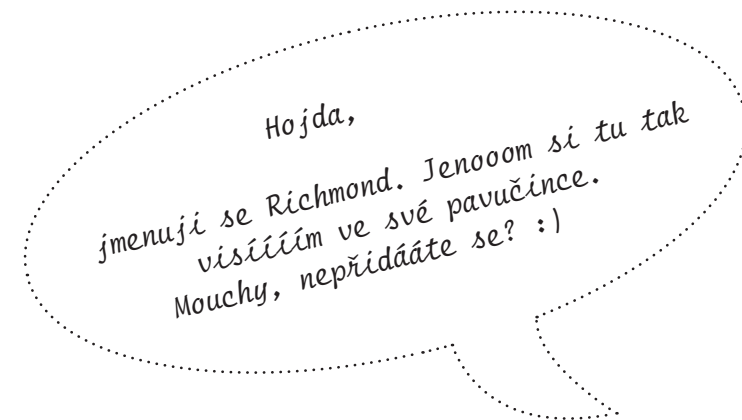 Hojda,
jmenuji se Richmond. Jenooom si tu tak
visíííím ve své pavučince.
Mouchy, nepřidááte se? :)